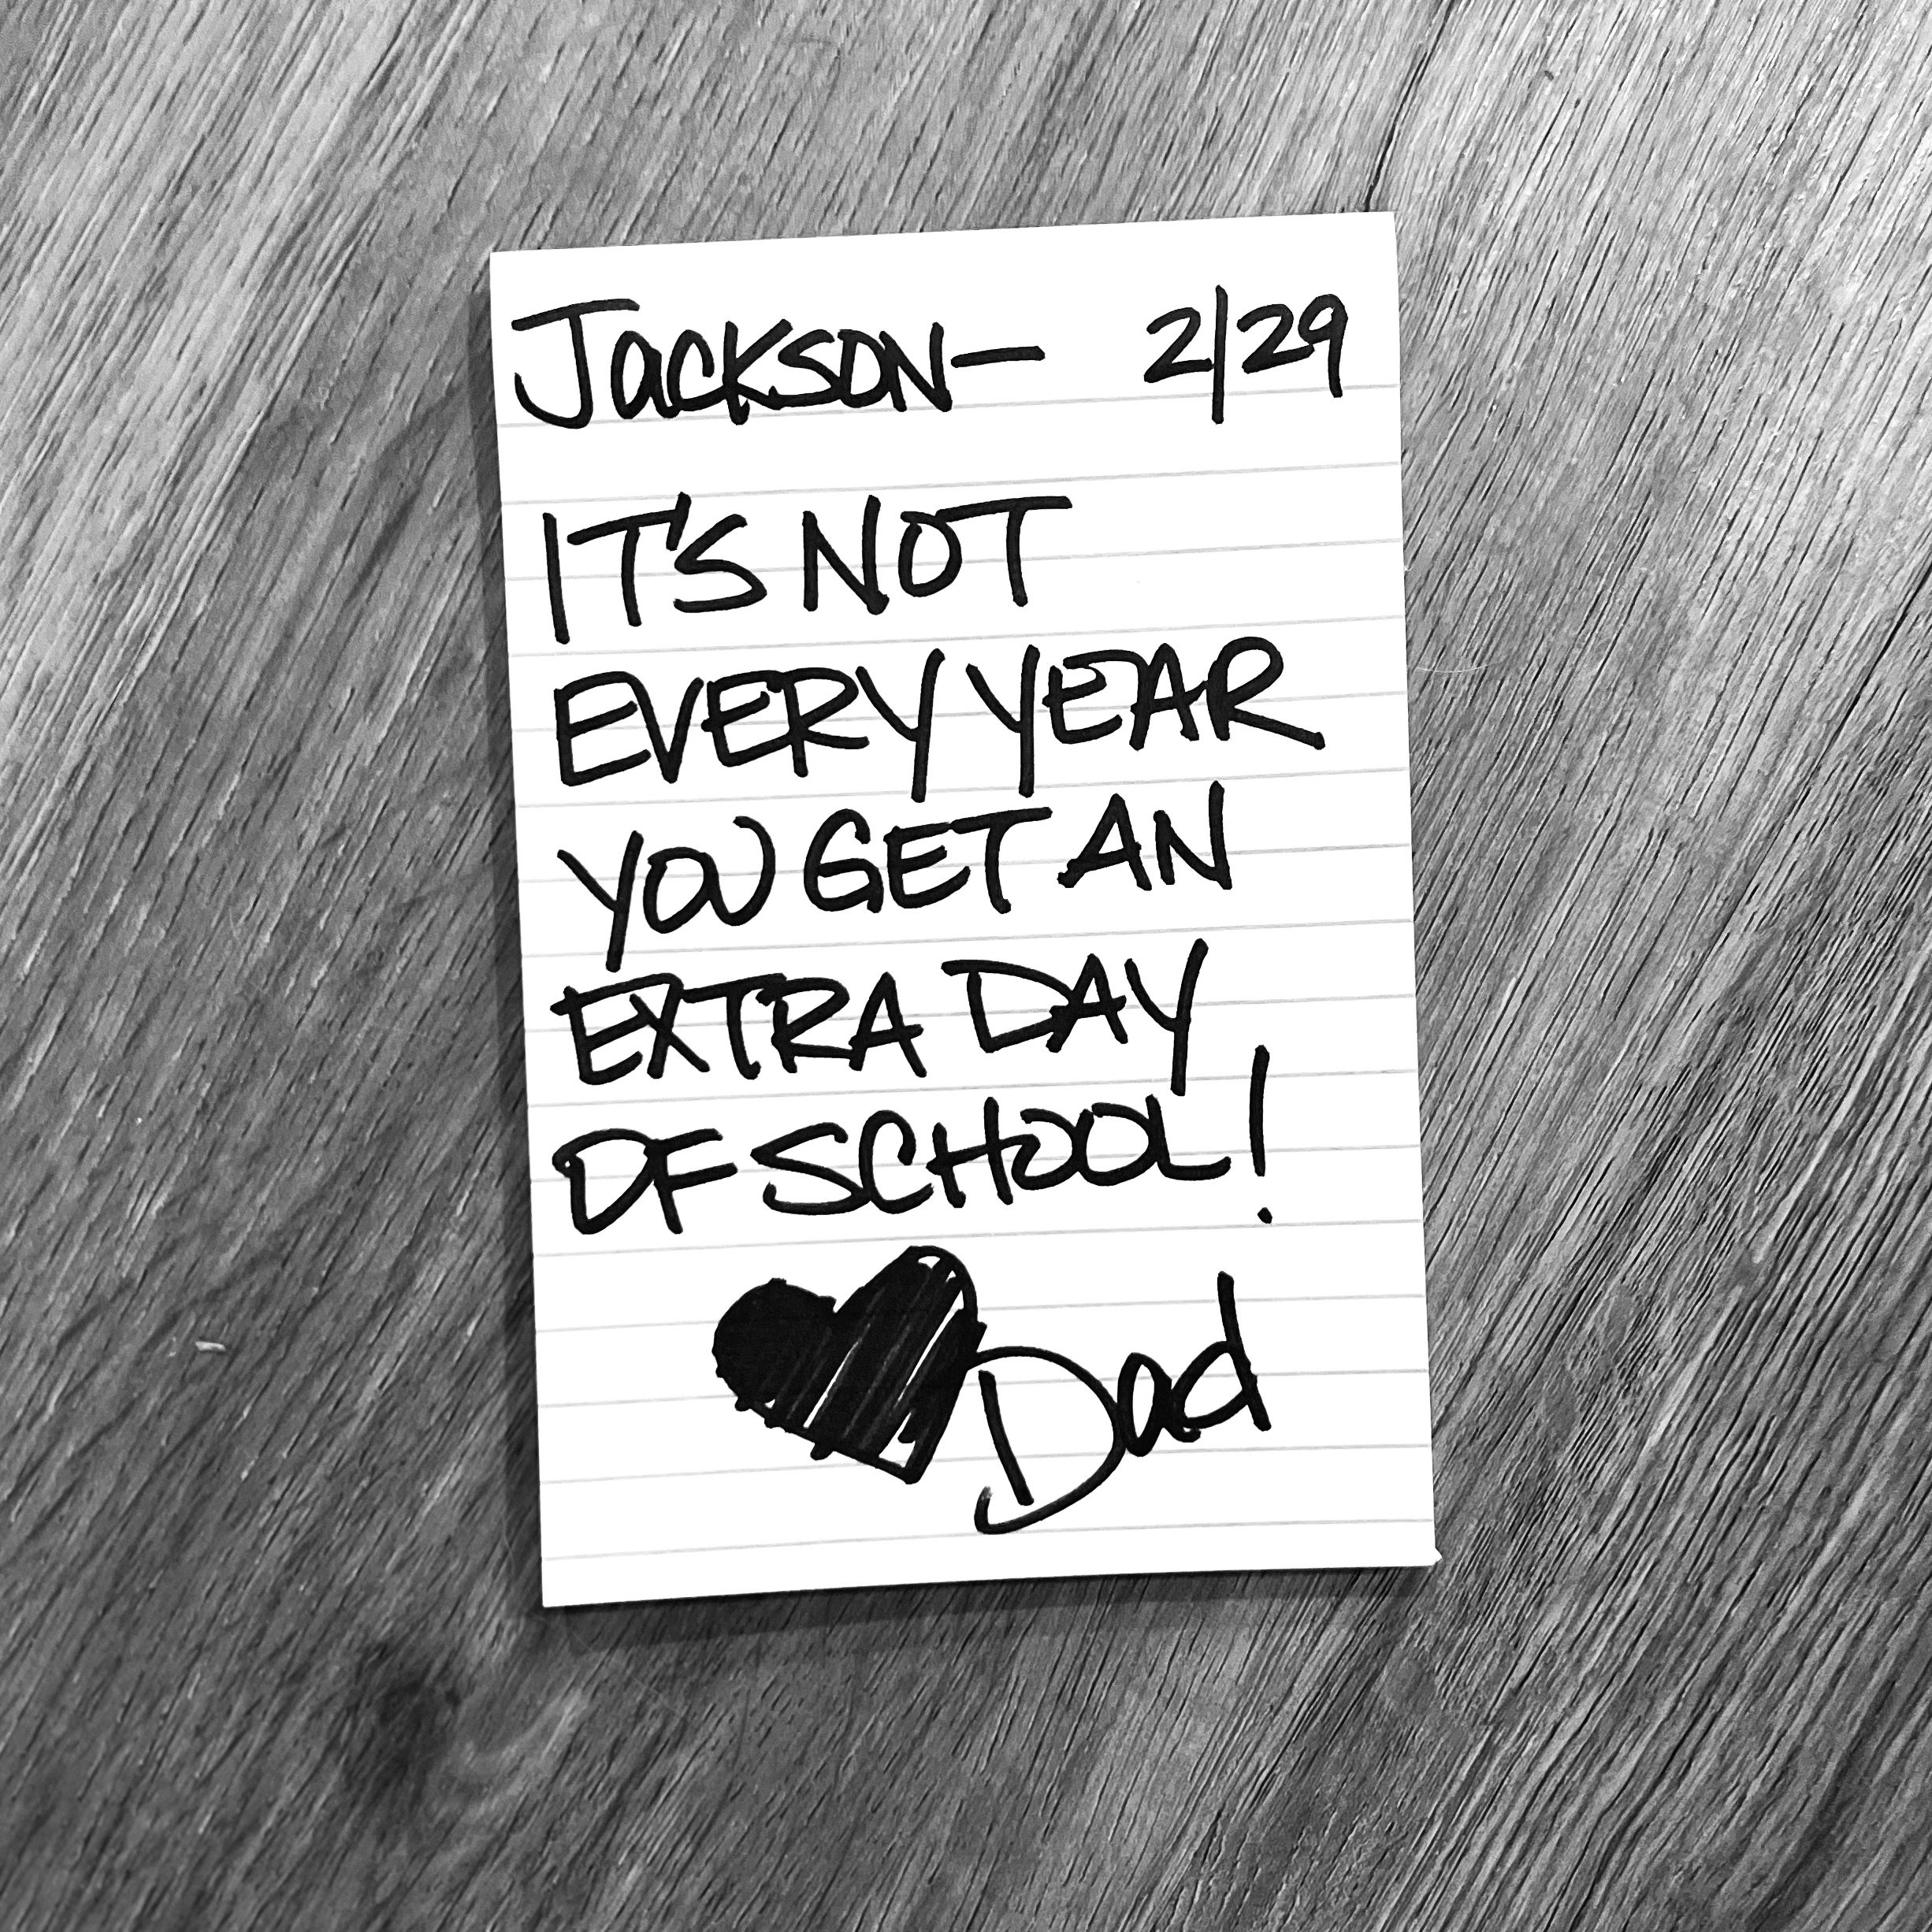 Jackson— 2/29
IT'S NOT
EVERY YEAR
YOU GET AN
EXTRA DAY
OF SCHOOL!
Dad